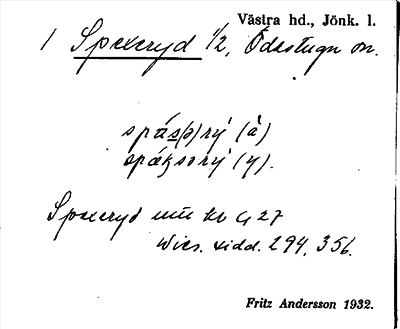 Västra hd., Jönk. l.
1 Spexeryd 1/2, Ödestugu sn.
spás(s)rý (å)
spáksorý (y).
Spexeryd
Wies. sidd. 294, 356.
Fritz Andersson 1932.